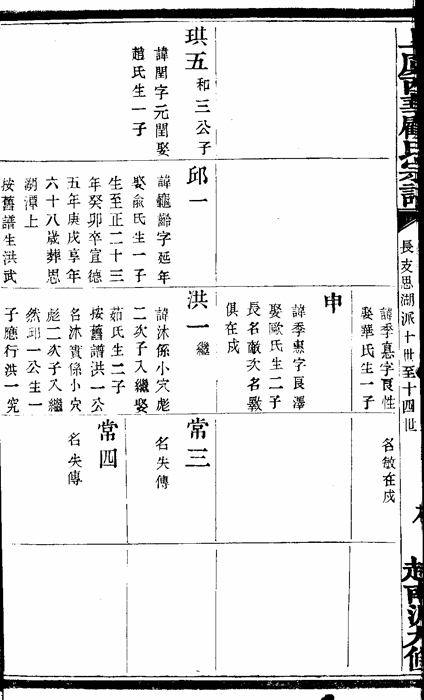 長支思湖派十世至十四世
娶華氏生一子
名敏在戍
申
諱季惠字艮澤
娶歐氏生二子
俱在戍
珙五 和三公子
諱閏字元閏娶
趙氏生一子
邱一
諱龜齡字延年
娶兪氏生一子
生至正二十三
年癸卯卒宣德
五年庚戌享年
六十八歲葬思
湖潭上
按舊譜生洪武
洪一 繼
諱沐係小穴彪
二次子入繼娶
茹氏生二子
按舊譜洪一公
名沐實係小穴
彪二次子入繼
然邱一公生一
子應行洪一究
常三
名失傳
常四
名失傳